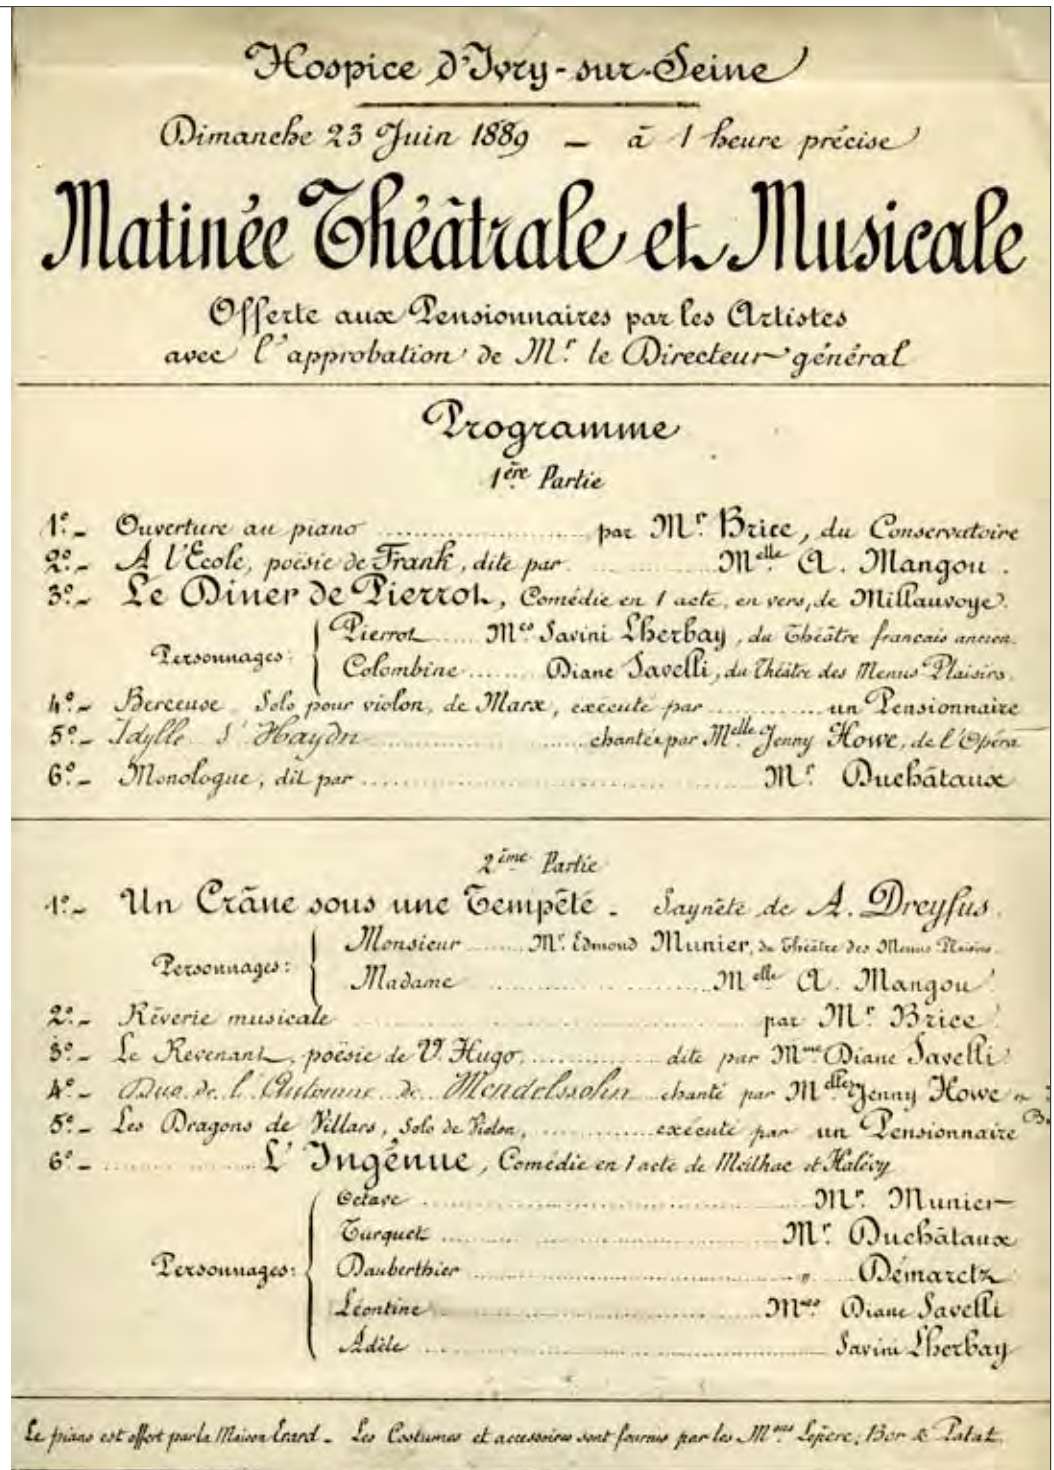 Hospice d'Ivry-sur-Seine
Dimanche 23 Juin 1889 — à 1 heure précise
Matinée Théâtrale et Musicale
Offerte aux Pensionnaires par les Artistes
avec l'approbation de Mr. le Directeur général
Programme
1ère Partie
1º.- Ouverture au piano .......... par Mr. Brice, du Conservatoire
2º.- A l'Ecole, poësie de Frank, dite par .......... Melle A. Mangou.
3º.- Le Diner de Pierrot, Comédie en 1 acte, en vers, de Millauvoye.
Personnages: Pierrot ..... Mes Savini Lherbay, du Théâtre francais ancien.
Colombine ........ Diane Savelli, du Théâtre des Menus Plaisirs.
4º.- Berceuse Solo pour violon, de Marx, exécuté par .......... un Pensionnaire
5º.- Idylle d'Haydn .......... chantée par Melle Jenny Howe, de l'Opéra
6º.- Monologue, dit par .......... Mr. Duchâtaux
2ème Partie
1º.- Un Crâne sous une Tempêté. Saynète de A. Dreyfus.
Personnages: Monsieur ....... Mr. Edmond Munier, du Théâtre des Menus Plaisirs.
Madame .......... Melle A. Mangou
2º.- Rêverie musicale .......... par Mr. Brice
3º.- Le Revenant, poësie de V. Hugo, .......... dite par Mme Diane Savelli
4º.- Duo de l'Automne de Mendelssohn chanté par Melles Jenny Howe
5º.- Les Dragons de Villars, Solo de Violon, .......... exécuté par un Pensionnaire
6º.- .......... L'Ingénue, Comédie en 1 acte de Meilhac et Halévy
Octave .......... Mr. Munier
Turquet .......... Mr. Duchâtaux
Personnages: Dauberthier .......... „ Démaretz
Léontine .......... Mmes Diane Savelli
Adèle .......... Savini Lherbay
Le piano est offert par la Maison Erard. Les Costumes et accessoires sont fournis par les Mons Lepère, Bor & Patat.